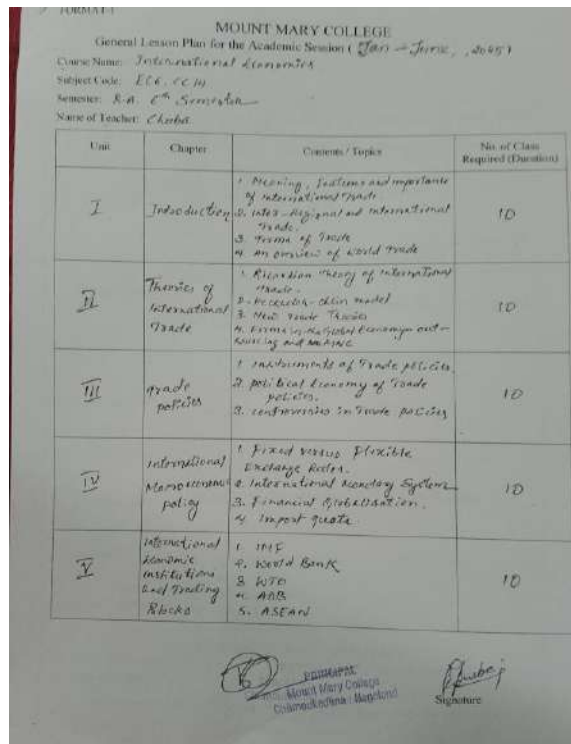 FORMAT-1
MOUNT MARY COLLEGE
General Lesson Plan for the Academic Session ( Jan – June, , 2045)
Course Name: International Economics
Subject Code: ECO. CC 14
Semester: B.A. 6th Semester
Name of Teacher: Chuba
Unit Chapter Contents / Topics No. of Class
Required (Duration)
I Introduction 10
1. Meaning, Features and importance
of international Trade
2. Inter-Regional and international
Trade.
3. Forms of Trade
4. An overview of World Trade
II Theories of International Trade 10
1. Ricardian Theory of International
Trade.
2. Heckscher-Ohlin model
3. New Trade Theories
4. Firms in the Global Economy out-
sourcing and
III Trade policies 10
1. instruments of Trade policies.
2. political Economy of Trade
policies.
3. controversies in Trade policies
IV International policy 10
1. Fixed versus Flexible
Exchange Rates.
2. International Monetary System
3. Financial Globalisation.
4. Import quota.
V International Economic institutions and Trading Blocks 10
1. IMF
2. World Bank
3. WTO
4. ADB
5. ASEAN
PRINCIPAL
Mount Mary College
Chumoukedima : Nagaland
Signature